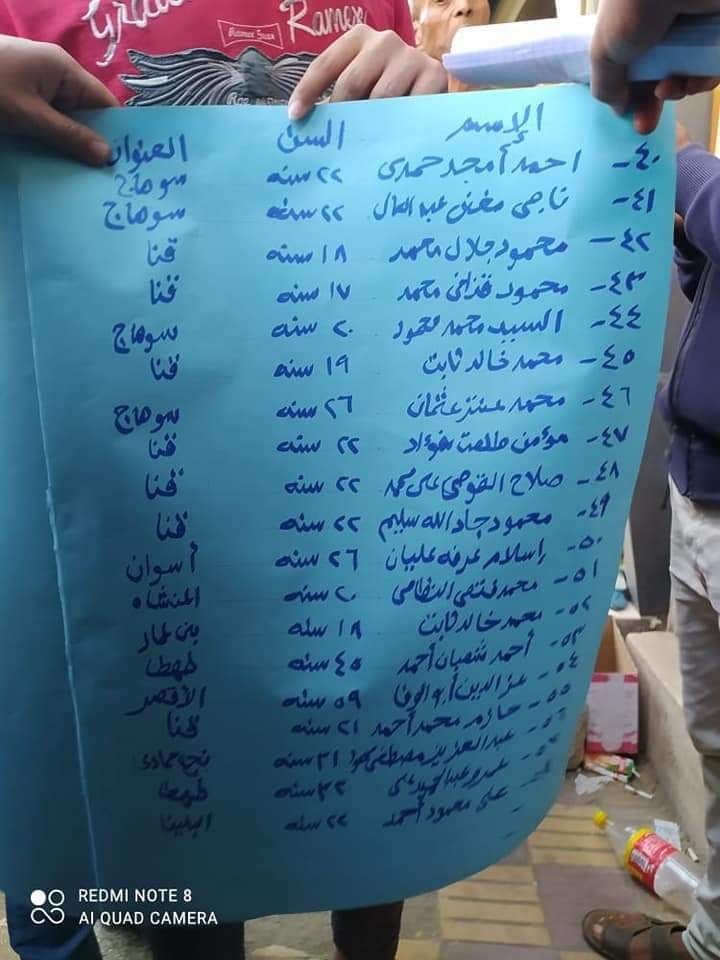 Ramese
الإسم السن العنوان
٤٠- احمد أمجد حمدى ٢٢ سنه سوهاج
٤١- ناجى مغنى عبد العال ٢٢ سنه سوهاج
٤٢- محمود جلال محمد ١٨ سنه قنا
٤٣- محمود قذافى محمد ١٧ سنه قنا
٤٤- السيد محمد محمود ٢٠ سنه سوهاج
٤٥- محمد خالد ثابت ١٩ سنه قنا
٤٦- محمد عثمان ٢٦ سنه سوهاج
٤٧- مؤمن طلعت فؤاد ٢٢ سنه قنا
٤٨- صلاح القوصى على محمد ٢٢ سنه قنا
٤٩- محمود جاد الله سليم ٢٢ سنه قنا
٥٠- إسلام عرفه عليان ٢٦ سنه أسوان
٥١- محمد النظامى ٢٠ سنه المنشاه
٥٢- محمد خالد ثابت ١٨ سنه بنى عمار
٥٣- أحمد شعبان أحمد ٤٥ سنه طهطا
٥٤- عز الدين أبو الوفا ٥٩ سنه الأقصر
٥٥- حازم محمد أحمد ٢١ سنه قنا
٥٦- عبد العزيز مصطفى ٣١ سنه نجع حمادى
٥٧- عمرو عبد الحميد على ٣٢ سنه طهطا
٥٨- على محمود أحمد ٢٢ سنه البلينا
REDMI NOTE 8
AI QUAD CAMERA